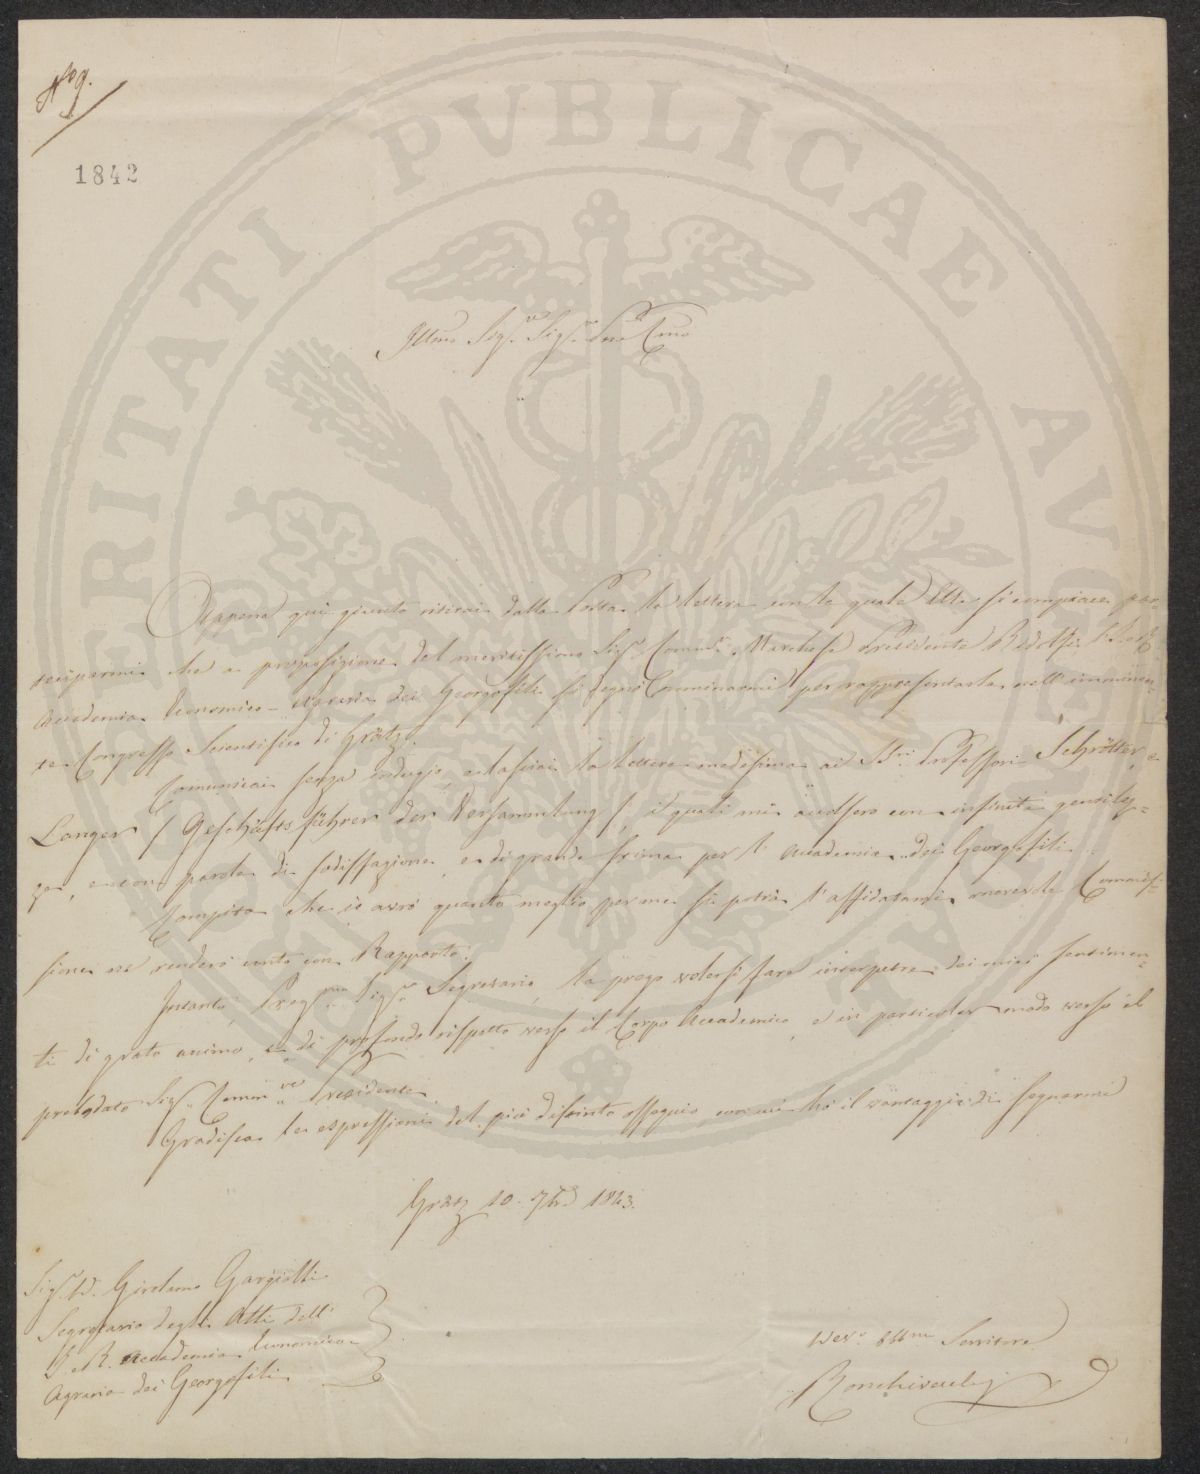 N.º 9.
1842
PROSPERITATI PVBLICAE AVGENDAE
Illmo Sig.re Sig.re Pne Cmo
Appena qui giunto ritirai dalla Posta la lettera con la quale Ella si compiace par=
teciparmi che a proposizione del meritissimo Sig.r Comm.e Marchese Presidente Ridolfi l'I. e R.
Accademia Economico-Agraria dei Georgofili si degnò nominarmi per rappresentarla nell'imminen=
te Congresso Scientifico di Grätz.
Comunicai senza indugio, e lasciai la lettera medesima ai SS.ri Professori Schrötter, e
Langer / Geschäftsführer der Versammlung /, i quali mi accolsero con infinita gentilez=
za, e con parole di sodisfazione, e di grande stima per l'Accademia dei Georgofili.
Compita che io avrò quanto meglio per me si potrà l'affidatami onorevole Commis=
sione ne renderò conto con Rapporto.
Intanto, Preg.mo Sig.r Segretario, la prego volersi fare interpetre dei miei sentimen=
ti di grato animo, e di profondo rispetto verso il Corpo Accademico, e in particolar modo verso il
prelodato Sig.r Comm.re Presidente.
Gradisca le espressioni del più distinto ossequio, con cui ho il vantaggio di segnarmi
Gratz 10. 7b.e 1843.
Sig.r D. Girolamo Gargiolli
Segretario degli Atti dell'
I. e R. Accademia Economico-
Agraria dei Georgofili
Dev.o Obb.mo Servitore